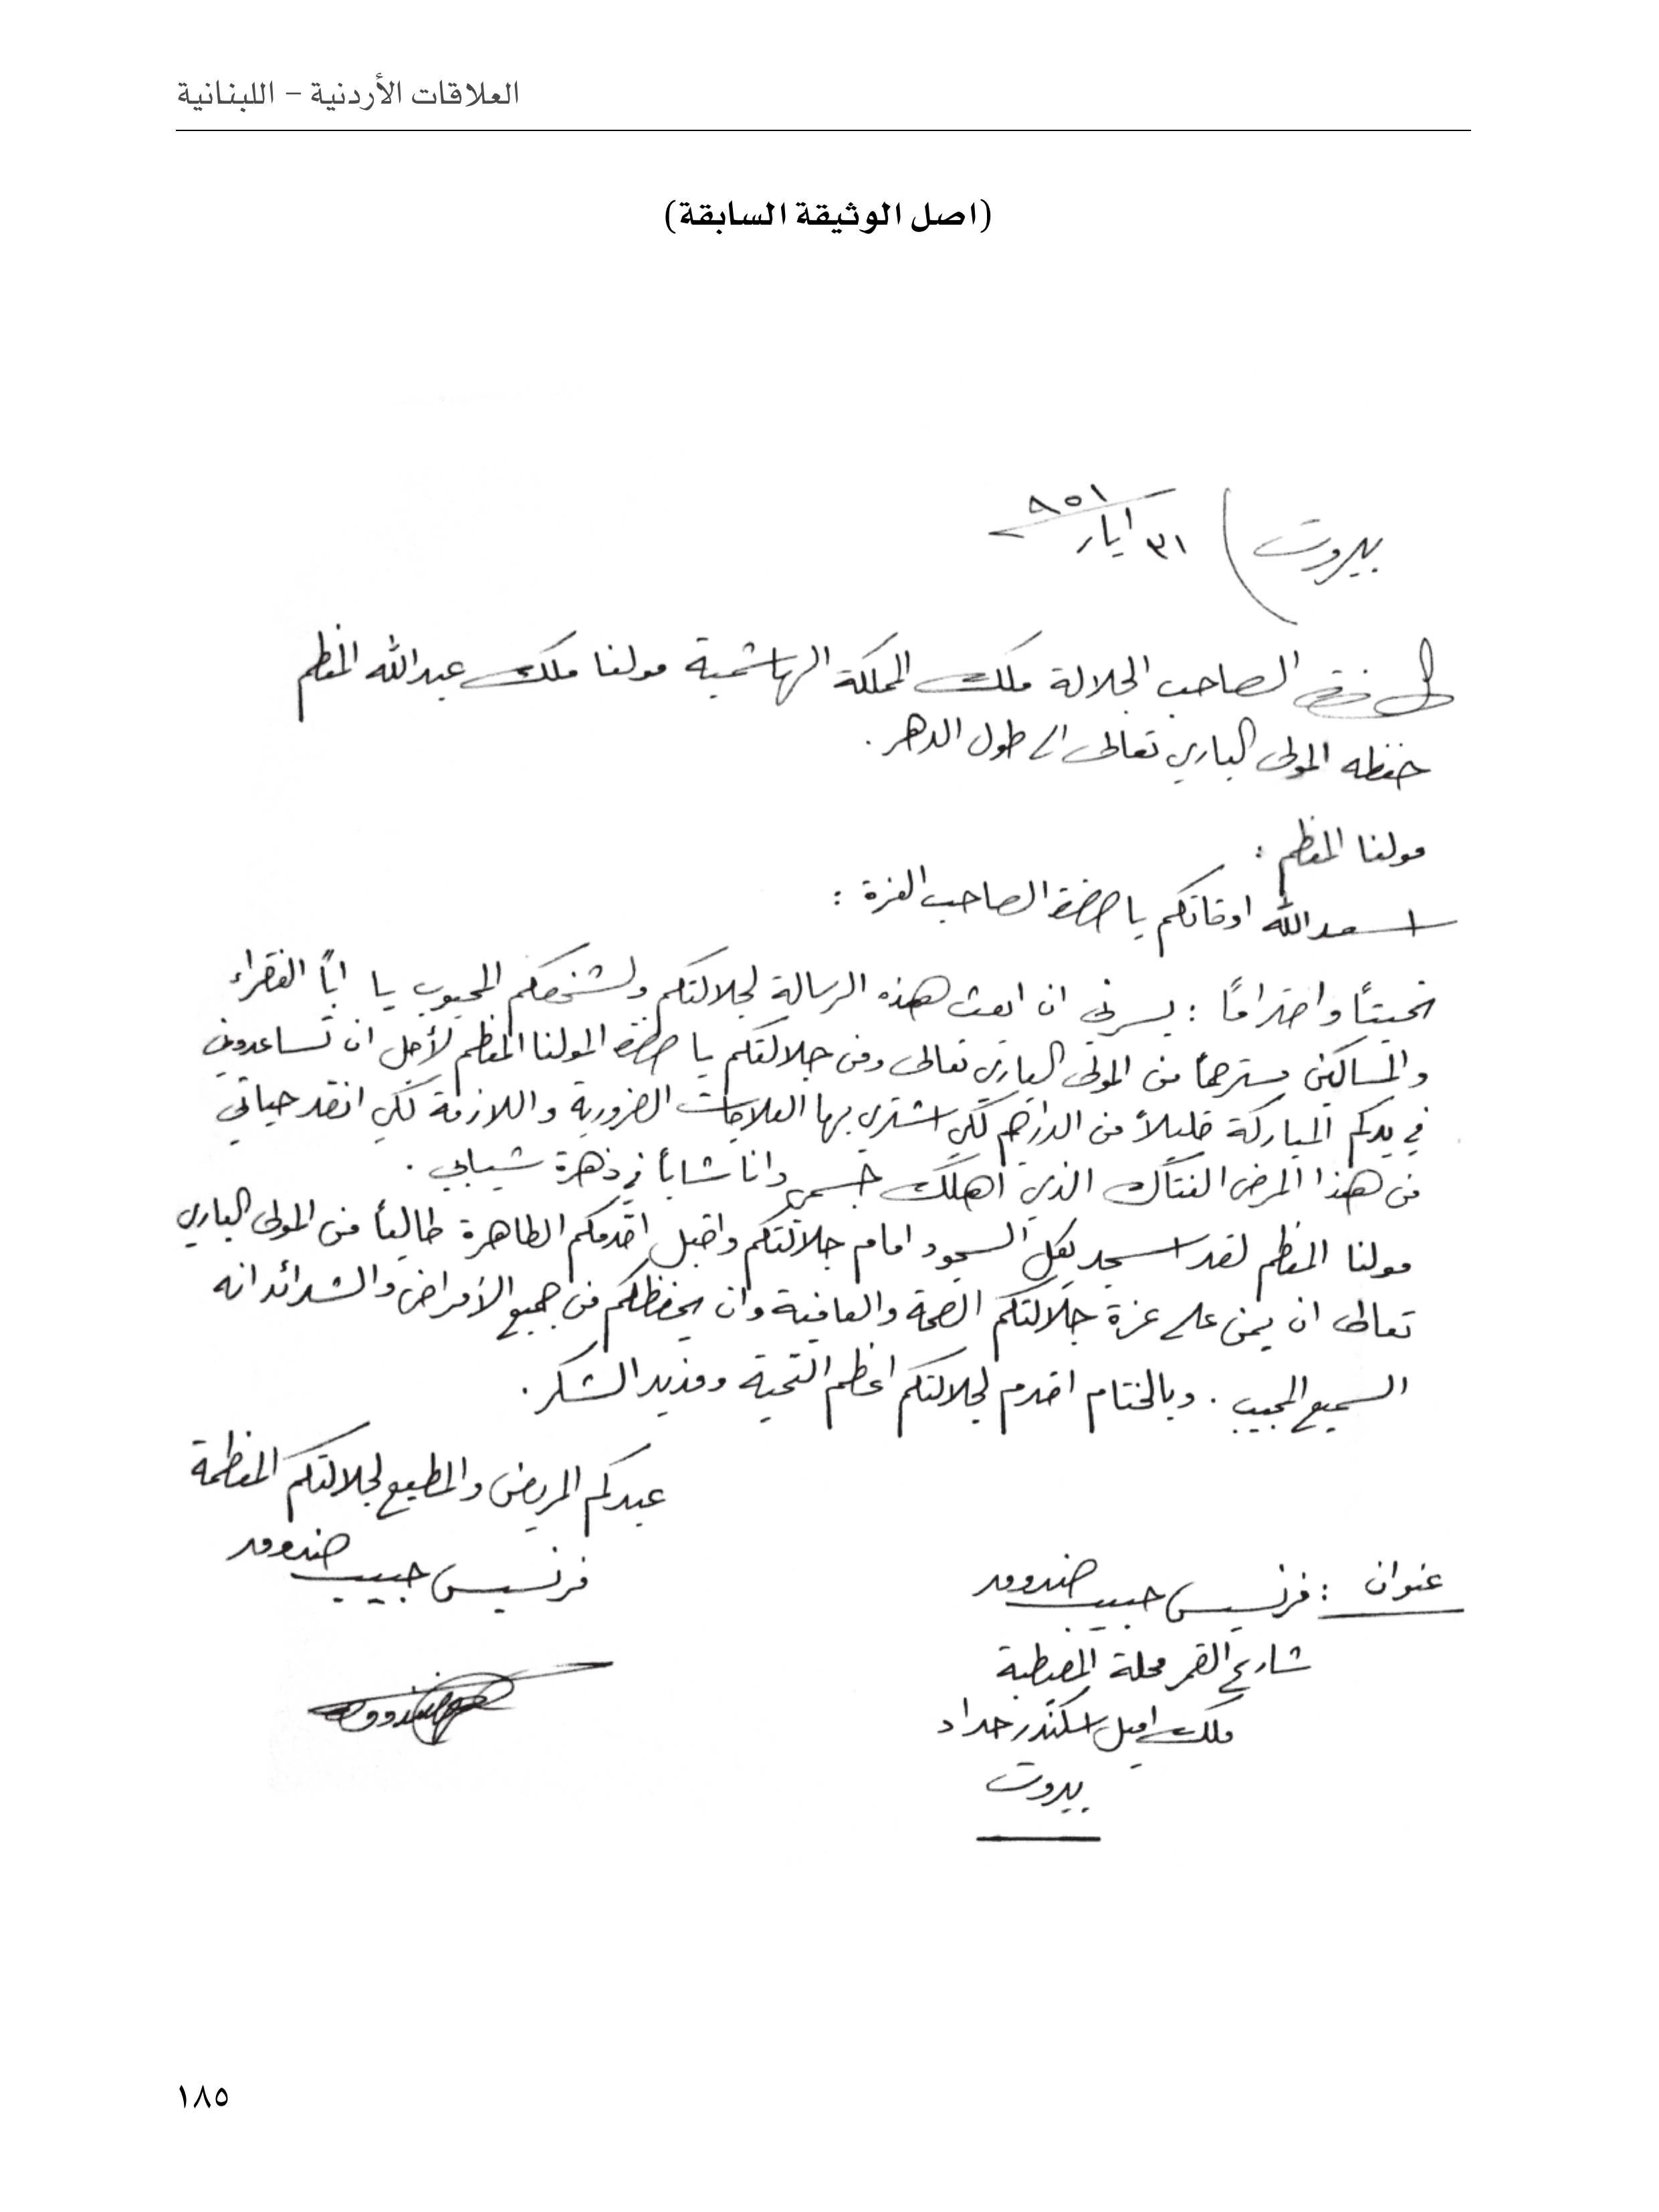 العلاقات الأردنية – اللبنانية
(اصل الوثيقة السابقة)
بيروت ٣١ ايار ٩٥١
الى حضرة الصاحب الجلالة ملك المملكة الهاشمية مولنا ملك عبدالله المعظم
حفظه المولى الباري تعالى الى طول الدهر .
مولنا المعظم :
اسعد الله اوقاتكم يا حضرة الصاحب العزة :
تحيتاً واحتراماً : يسرني ان ابعث هذه الرسالة لجلالتكم ولشخصكم المحبوب يا اباً الفقراء
والمساكين مسترحماً من المولى الباري تعالى ومن جلالتكم يا حضرة المولنا المعظم لأجل ان تساعدوني
في يدكم المباركة قليلاً من الدراهم لكي اشتري بها العلاجات الضرورية واللازمة لكي انقد حياتي
من هذا المرض الفتاك الذي اهلك جسمي وانا شاباً في ذهرة شبابي .
مولنا المعظم لقد اسجد بكل السجود امام جلالتكم واقبل اقدمكم الطاهرة طالباً من المولى الباري
تعالى ان يمن على عزة جلالتكم الصحة والعافية وان يحفظكم من جميع الأمراض والشدائد انه
السميع المجيب . وبالختام اقدم لجلالتكم اعظم التحية ومذيد الشكر .
عبدكم المريض والمطيع لجلالتكم المعظمة
فرنسيس حبيب
عنوان : فرنسيس حبيب
شارع القمر محلة المصيطبة
ملك اميل اسكندر حداد
بيروت
١٨٥